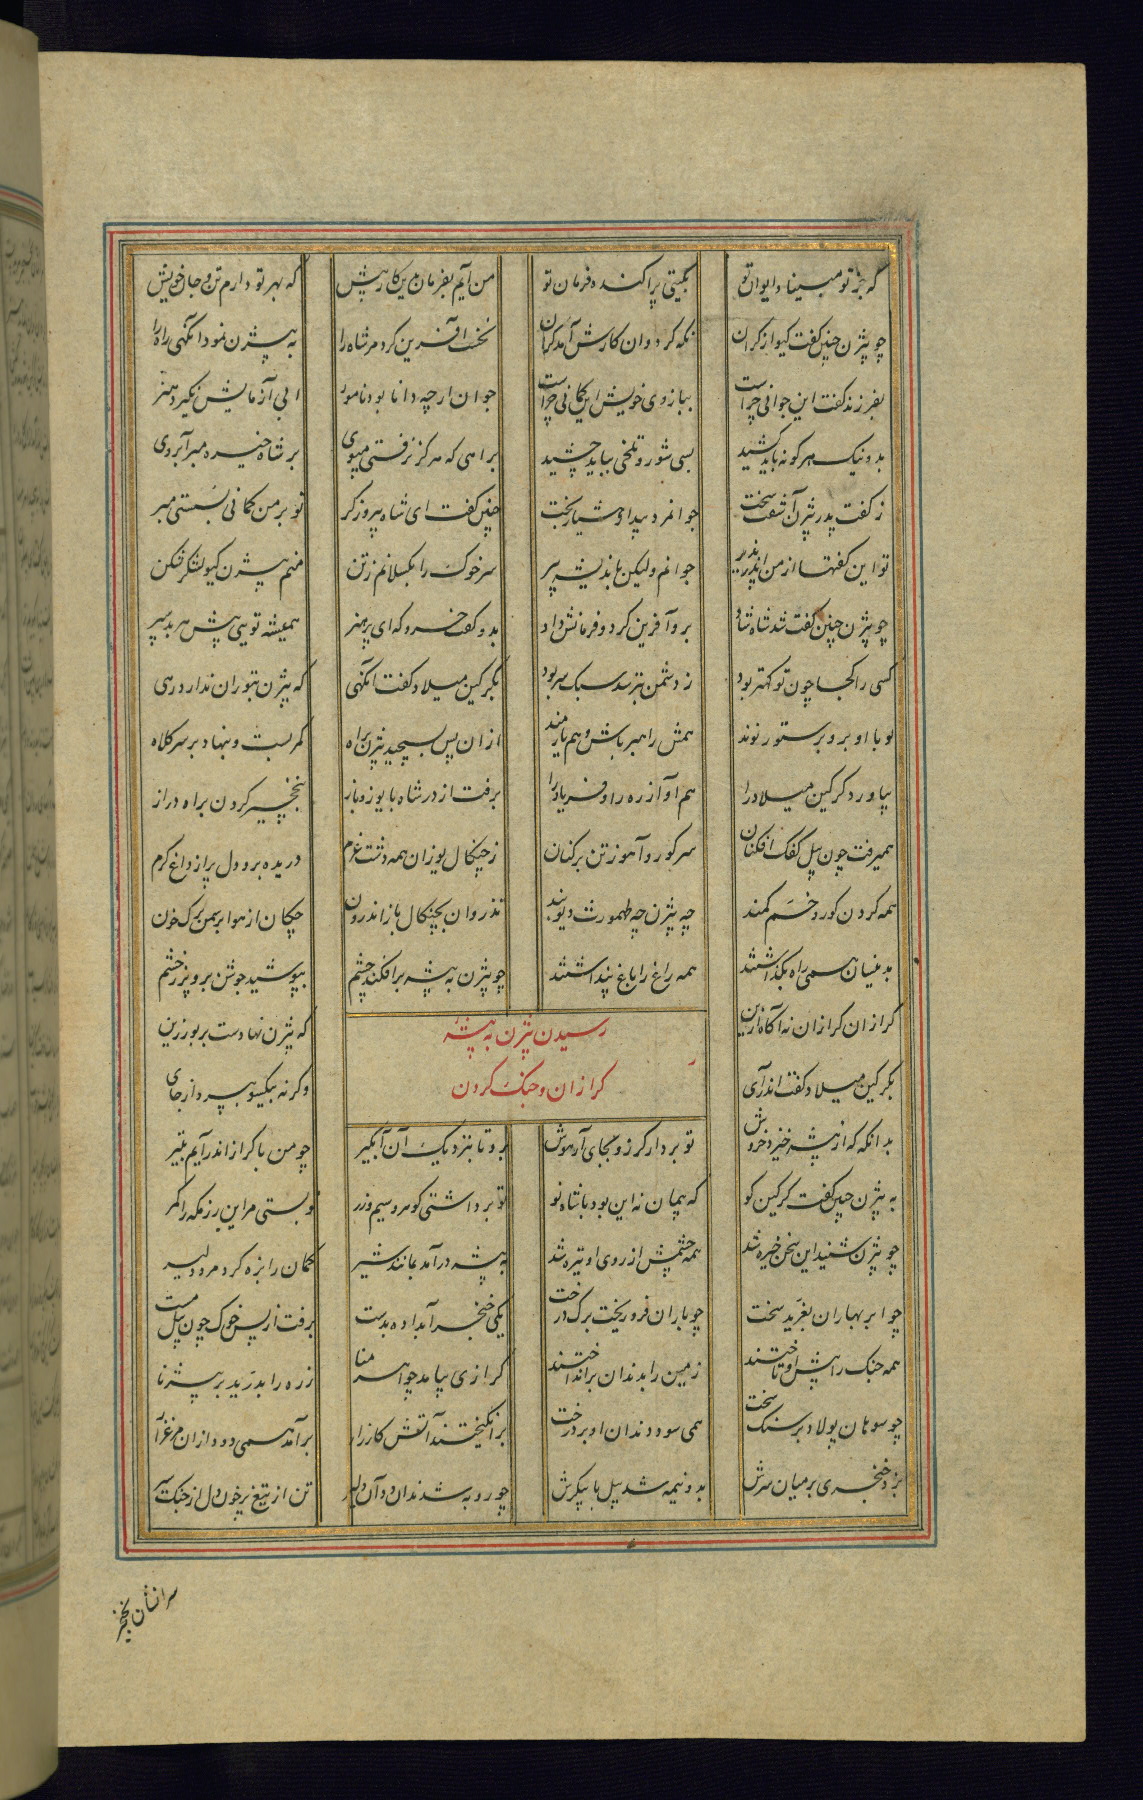 که جز تو مبیناد ایوان تو بگیتی پراکنده فرمان تو من آیم بفرمان برین کار پیش که بهر تو دارم تن و جان خویش
چو بیژن چنین گفت گیو از کران نگه کرد و ان کارش آمد گران نخست آفرین کرد مر شاه را به بیژن نمود آنگهی راه را
بفرزند گفت این جوانی چراست ببازوی خویش این گمانی چراست جوان ارچه دانا بود نامور ابی آزمایش نگیرد هنر
بد و نیک هر گونه باید کشید بسی شور و تلخی بباید چشید براهی که هرگز نرفتی مپوی بر شاه خیره مبر آبروی
ز گفت پدر بیژن آشفت سخت جوانمرد بیدار هشیار بخت چنین گفت ای شاه پیروزگر تو بر من گمانی بسستی مبر
تو این گفتها از من اندر پذیر جوانم ولیکن باندیشه پیر سر خوک را بگسلانم ز تن منم بیژن گیو لشکر شکن
چو بیژن چنین گفت شد شاه شاد برو آفرین کرد و فرمانش داد بدو گفت خسرو که ای پرهنر همیشه تویی پیش هر بد سپر
کسی را کجا چون تو کهتر بود ز دشمن بترسد سبک سر بود بگرگین میلاد گفت انگهی که بیژن بتوران نداند رهی
تو با او برو بر ستور نوند همش راهبر باش و هم یارمند از ان پس بسیجید بیژن براه کمر بست و بنهاد بر سر کلاه
بیاورد گرگین میلاد را هم آواز ره را و فریاد را برفت از در شاه با یوز و باز بنخچیر کردن براه دراز
همیرفت چون پیل کفک افکنان سر گور و آهو ز تن بر کنان ز چنگال یوزان همه دشت غرم دریده برو دل پر از داغ گرم
همه گردن گور و خم کمند چه بیژن چه طهمورث دیوبند تذروان بچنگال باز اندرون چکان از هوا بر سمن برگ خون
بدینسان همی راه بگذاشتند همه راغ را باغ پنداشتند چو بیژن به بیشه برافکند چشم بپوشید جوشن برو بر ز خشم
رسیدن بیژن به بیشهٔ
گرازان و جنگ کردن
گرازان گرازان نه آگاه ازین که بیژن نهادست بر بور زین
بگرگین میلاد گفت اندر آی وگرنه بیکسو بپرداز جای
بدانگه که از بیشه خیزد خروش تو بردار گرز و بجای آر هوش برو تا بنزدیک آن آبگیر چو من با گراز اندر آیم بتیر
به بیژن چنین گفت گرگین گو که پیمان نه این بود با شاه نو تو برداشتی گوهر و سیم و زر تو بستی مر این رزمگه را کمر
چو بیژن شنید این سخن خیره شد همه چشمش از روی او تیره شد به بیشه درآمد بمانند شیر کمان را بزه کرد مرد دلیر
چو ابر بهاران بغرید سخت چو باران فرو ریخت برگ درخت یکی خنجر آبداده بدست برفت از پس خوک چون پیل مست
همه جنگ را پیش او تاختند زمین را بدندان برانداختند گرازی بیامد چو آهرمنا زره را بدرید بر بیژنا
چو سوهان پولاد بر سنگ سخت همی سود دندان او بر درخت برانگیختند آتش کارزار برآمد همی دود از ان مرغزار
بزد خنجری بر میان سرش بدو نیمه شد پیل با پیکرش چو روبه شدند آن ددان دلیر تن از تیغ پر خون دل از جنگ سیر
سرانشان بخنجر